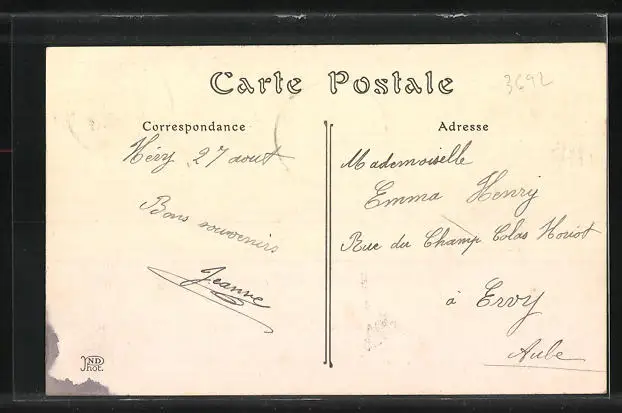 Carte Postale
3692
Correspondance
Héry 27 aout
Bons souvenirs
Jeanne
ND
Phot.
Adresse
Mademoiselle
Emma Henry
Rue du Champ Colas Horiot
à Ervy
Aube